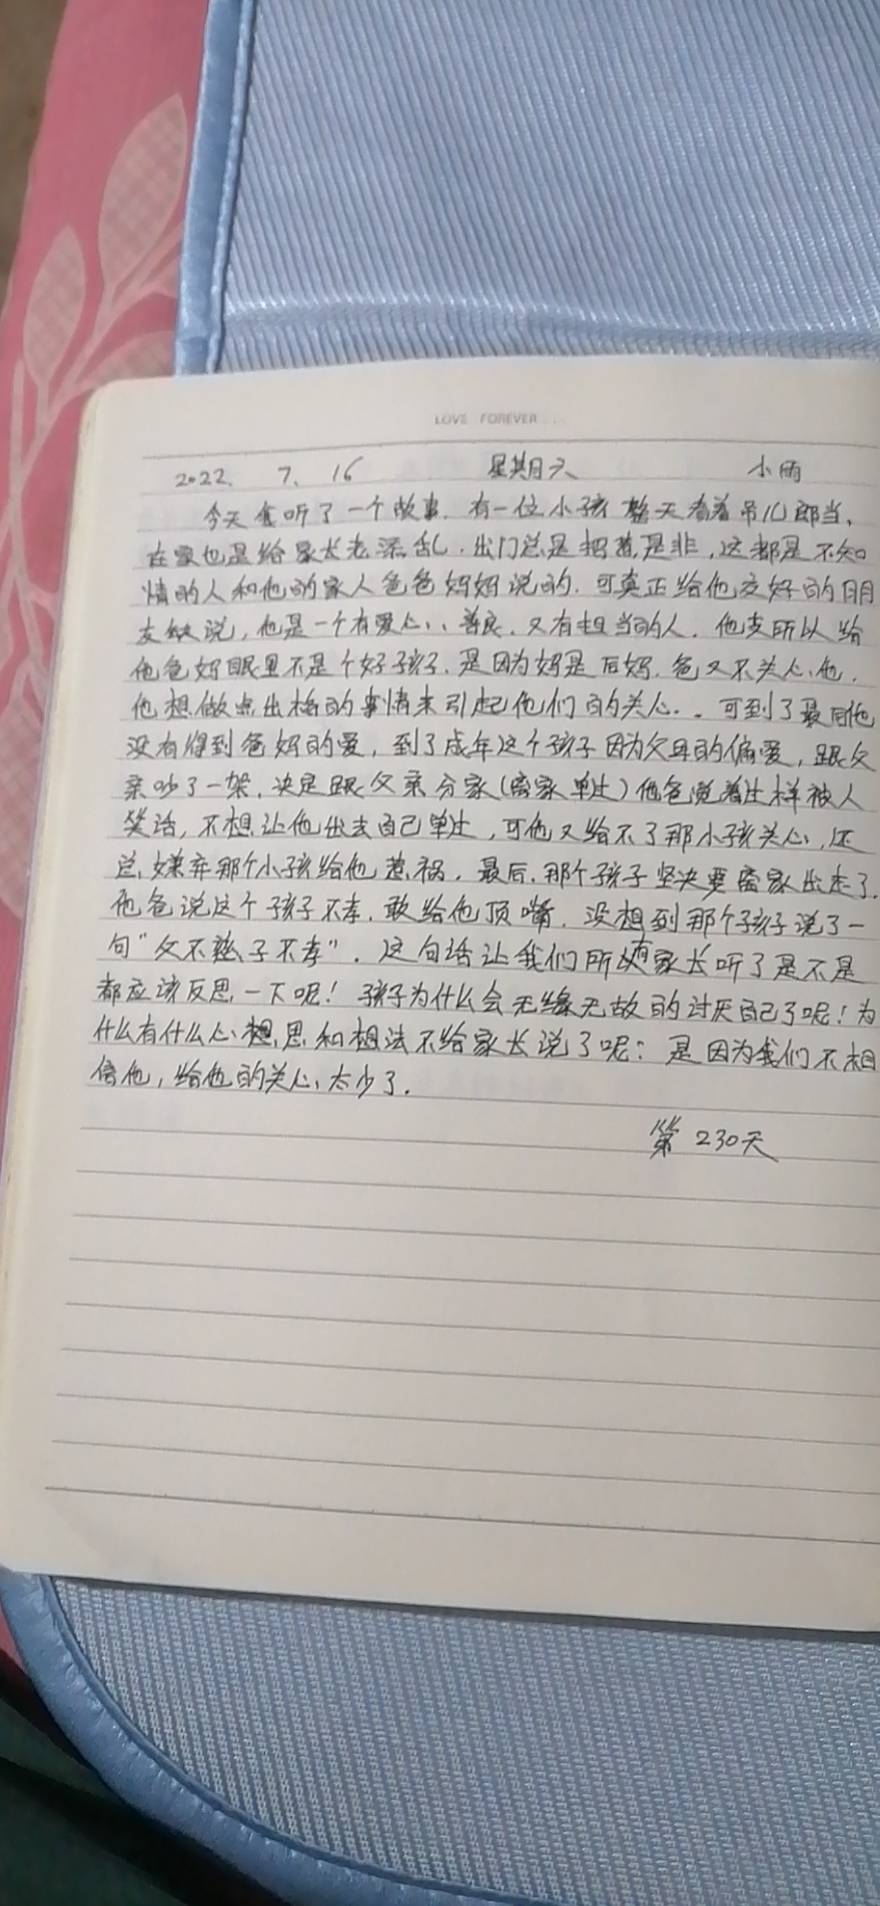 LOVE FOREVER
2022. 7. 16 星期六 小雨
今天食听了一个故事. 有一位小孩整天看着吊儿郎当,
在家也是给家长老添乱. 出门总是招惹是非, 这都是不知
情的人和他的家人爸爸妈妈说的. 可真正给他交好的朋
友缺说, 他是一个有爱心、善良. 又有担当的人. 他支所以给
他爸妈眼里不是个好孩子. 是因为妈是后妈. 爸又不关心他.
他想做点出格的事情来引起他们的关心.. 可到了最后他
没有得到爸妈的爱, 到了成年这个孩子因为父母的偏爱, 跟父
亲吵了一架. 决定跟父亲分家(离家单过)他爸觉着这样被人
笑话, 不想让他出去自己单过, 可他又给不了那小孩关心, 还
总嫌弃那个小孩给他惹祸. 最后. 那个孩子坚决要离家出走了.
他爸说这个孩子不孝. 敢给他顶嘴. 没想到那个孩子说了一
句"父不慈子不孝". 这句话让我们所有家长听了是不是
都应该反思一下呢! 孩子为什么会无缘无故的讨厌自己了呢! 为
什么有什么心想思和想法不给家长说了呢: 是因为我们不相
信他, 给他的关心太少了.
第 230天